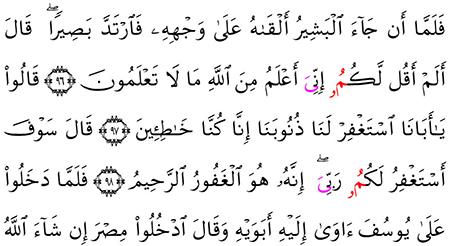 فَلَمَّا أَن جَآءَ ٱلْبَشِيرُ أَلْقَىٰهُ عَلَىٰ وَجْهِهِۦ فَٱرْتَدَّ بَصِيرًاۖ قَالَ
أَلَمْ أَقُل لَّكُمُۥٓ إِنِّىَ أَعْلَمُ مِنَ ٱللَّهِ مَا لَا تَعْلَمُونَ ﴿٩٦﴾ قَالُوا۟
يَـٰٓأَبَانَا ٱسْتَغْفِرْ لَنَا ذُنُوبَنَآ إِنَّا كُنَّا خَـٰطِـِٔينَ ﴿٩٧﴾ قَالَ سَوْفَ
أَسْتَغْفِرُ لَكُمُۥ رَبِّىَۖ إِنَّهُۥ هُوَ ٱلْغَفُورُ ٱلرَّحِيمُ ﴿٩٨﴾ فَلَمَّا دَخَلُوا۟
عَلَىٰ يُوسُفَ ءَاوَىٰٓ إِلَيْهِ أَبَوَيْهِ وَقَالَ ٱدْخُلُوا۟ مِصْرَ إِن شَآءَ ٱللَّهُ